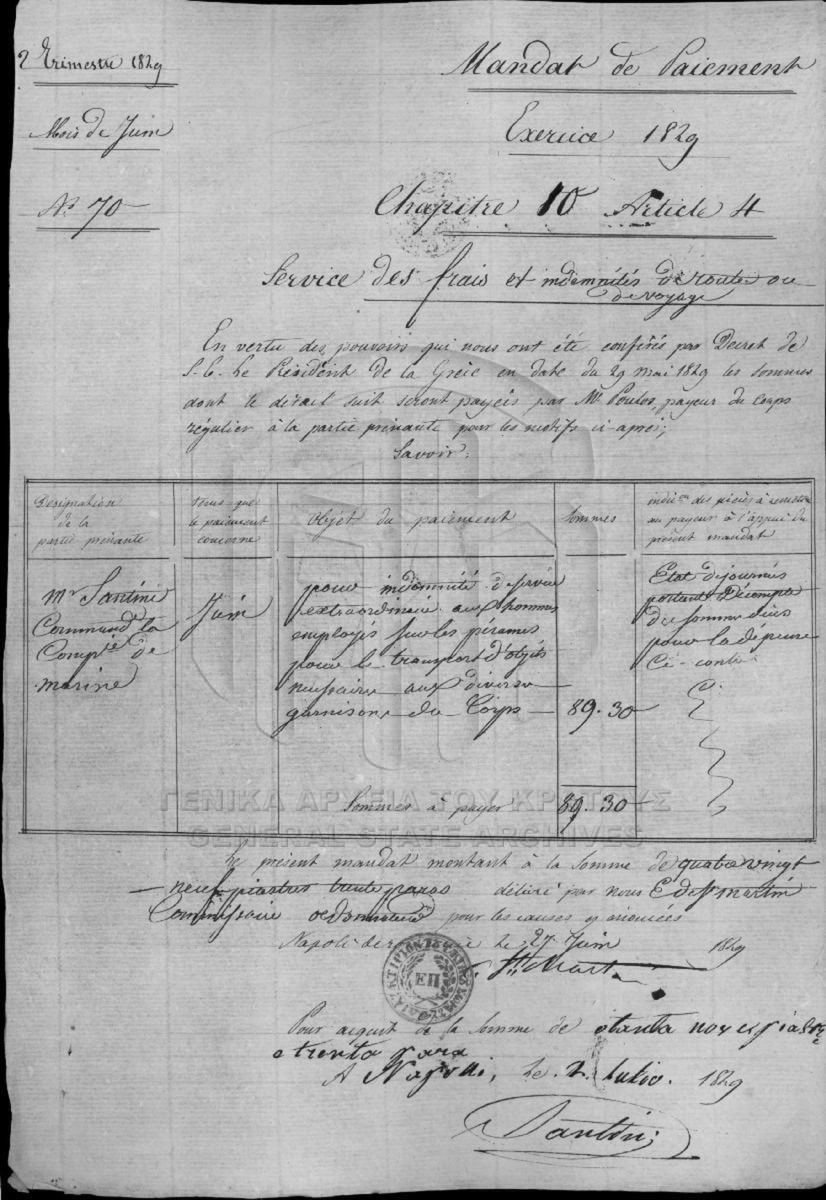 2 Trimestre 1829
Mois de Juin
No 70
Mandat de Paiement
Exercice 1829
Chapitre 10 Article 4
Service des frais et indemnités de route ou
de voyage
En vertu des pouvoirs qui nous ont été conférés par Decret de
S. E. Le Président de la Grèce en date du 29 mai 1829 les sommes
dont le détail suit seront payées par Mr. Poulos, payeur du corps
régulier à la partie prenante pour les motifs ci-après;
Savoir:
Désignation
de la
partie prenante
le paiement
concerne
Objet du paiement
Sommes
des pièces à remettre
au payeur à l'appui du
présent mandat
Mr Santini
Commandt la
Compie de
marine
Juin
pour indemnité de service
extraordinaire aux hommes
employés sur les pérames
pour le transport d'objets
nécessaires aux diverses
garnisons du Corps 89.30
Etat de journées
portant Décompte
des sommes dues
pour la dépense
Ci-contre
Sommes à payer 89.30
ΓΕΝΙΚΑ ΑΡΧΕΙΑ ΤΟΥ ΚΡΑΤΟΥΣ
GENERAL STATE ARCHIVES
Le présent mandat montant à la somme de quatre vingt
neuf piastres trente paras délivré par nous E de St martin
Commissaire ordonnateur pour les causes y énoncées
Napoli de le 27 Juin 1829
St Martin
ΕΠ
Pour acquit de la somme de otanta nove piastre
e trenta para
A Napoli, le 2 Lulio. 1829
Santini